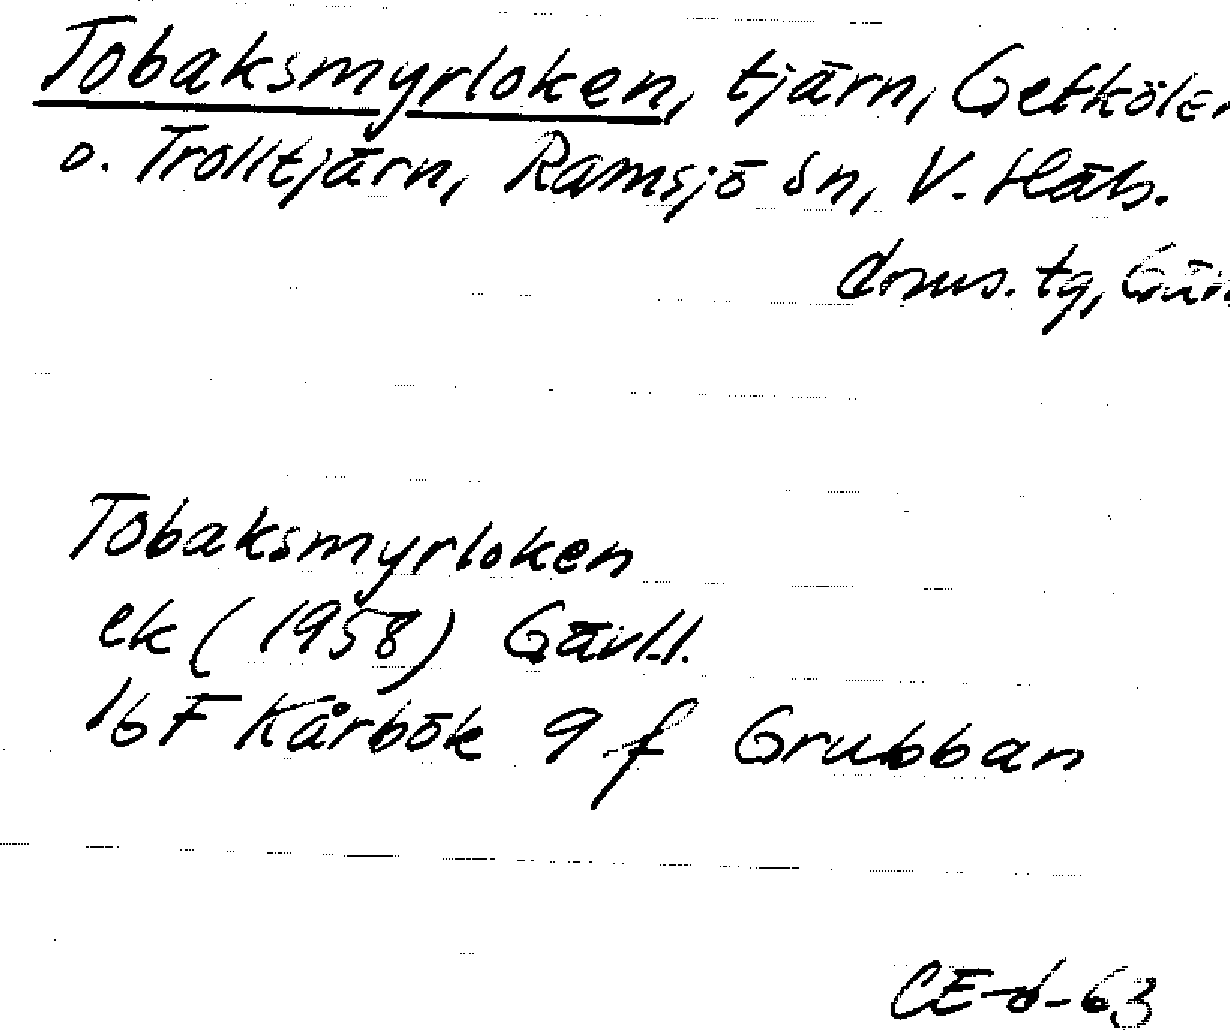 Tobaksmyrloken, tjärn, Getkölen
o. Trolltjärn, Ramsjö sn, V. Häls.
doms. tg, Gäv.
Tobaksmyrloken
ek (1958) Gävl.l.
16F Kårbök 9 f Grubban
CE-d-63